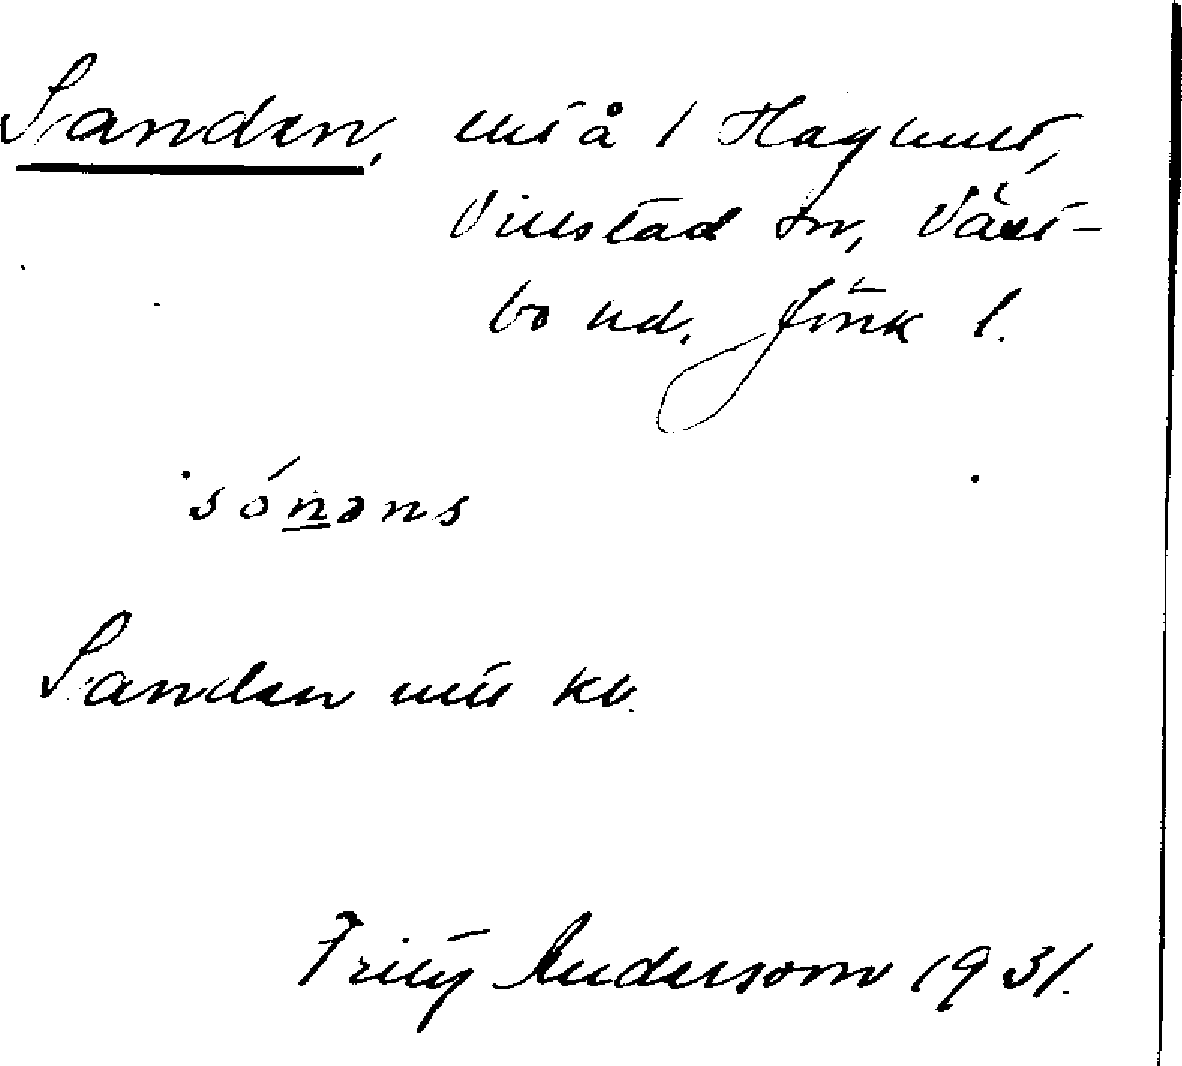 Sanden, utså / Haghult,
Villstad sn, Väst-
bo hd, Jönk l.
sónəns
Sanden utsk kv.
Fritz Anderson 1931.